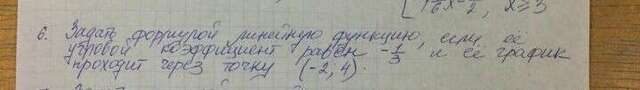 1/6 x - 1/2, x ≥ 3
6. Задать формулой линейную функцию, если её
угловой коэффициент равен -1/3 и её график
проходит через точку (-2, 4).